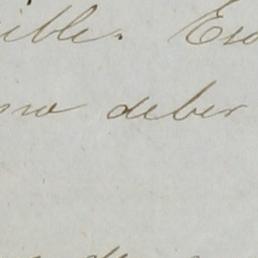 ible. Eso
mo deber